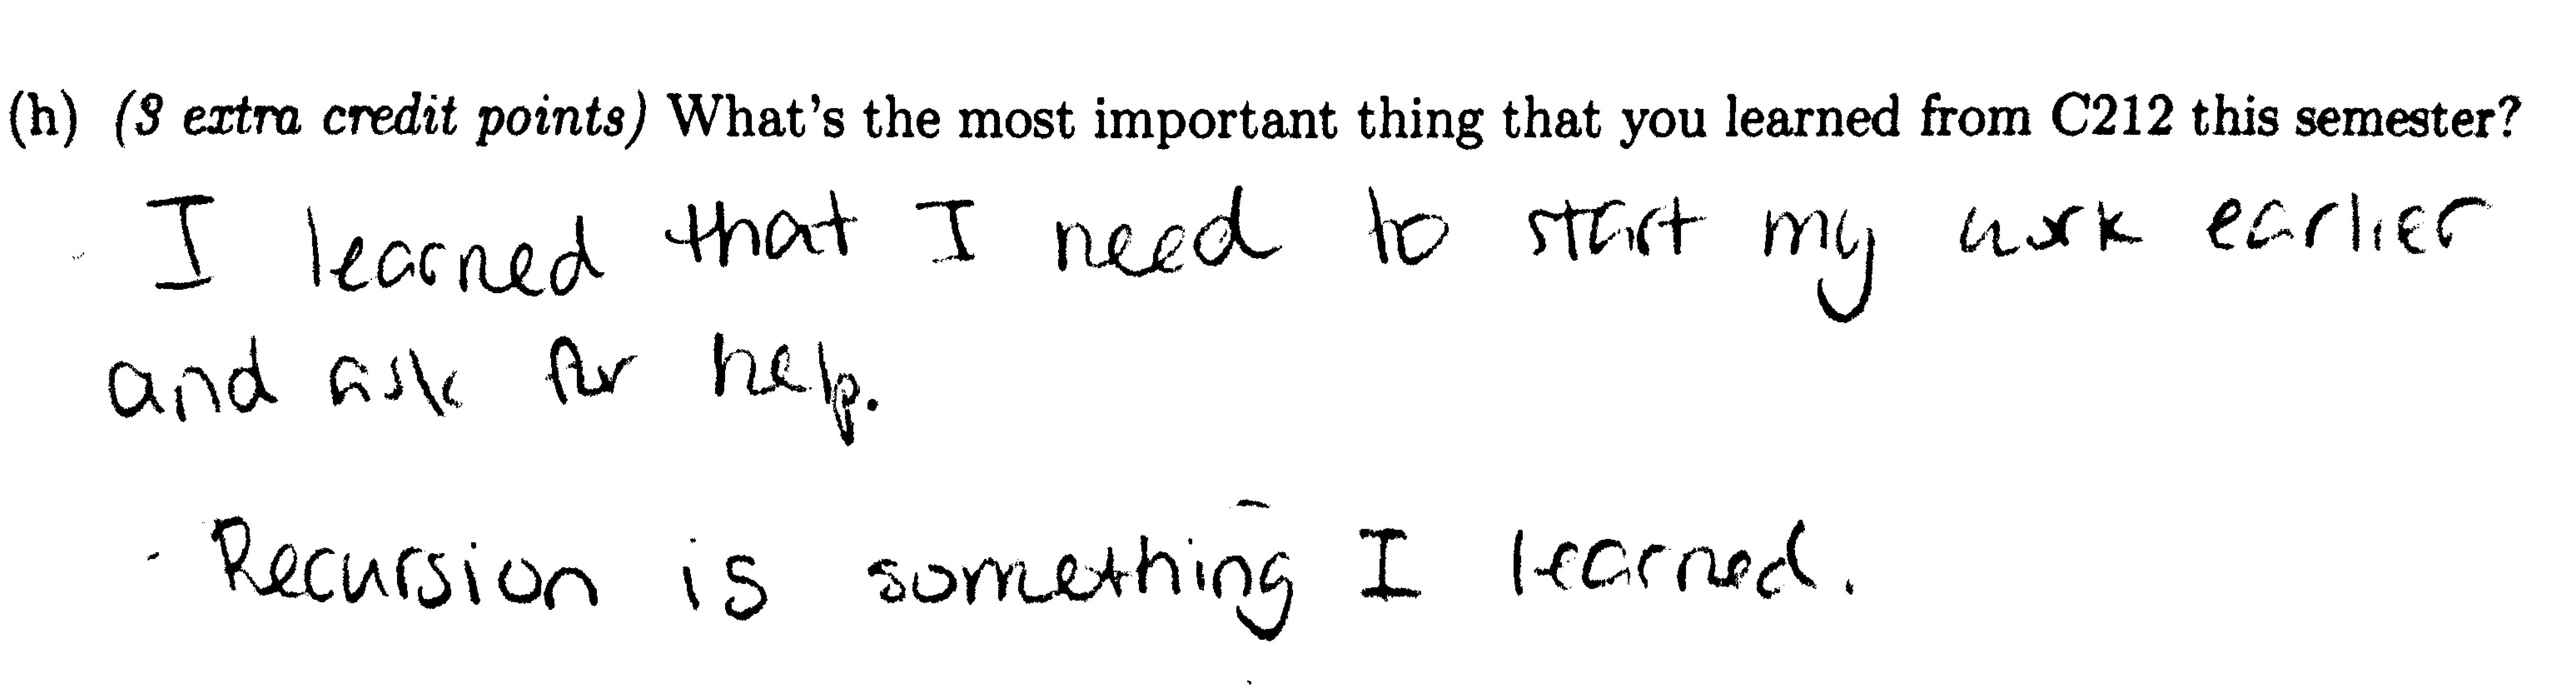 (h) (3 extra credit points) What's the most important thing that you learned from C212 this semester?
I learned that I need to start my work earlier
and ask for help.
Recursion is something I learned.